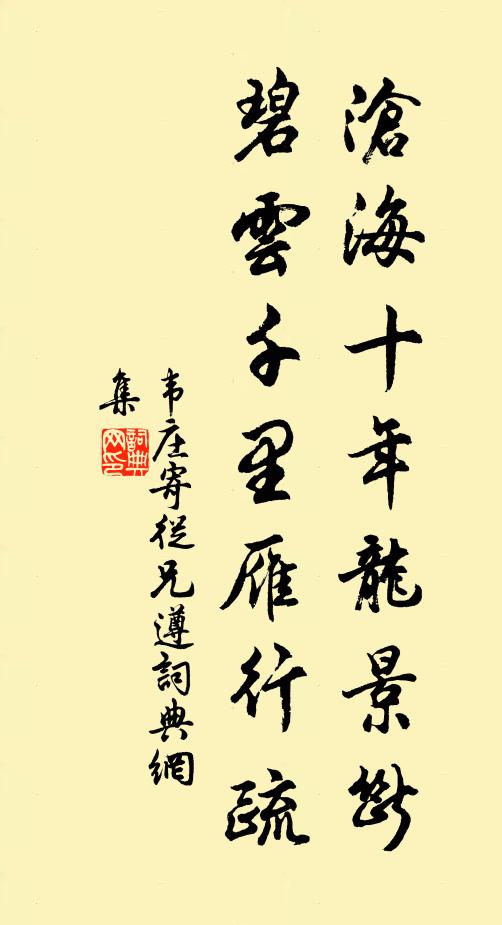 滄海十年龍景斷
碧雲千里雁行疏
韦庄寄從兄遵詞典網
集
詞典网印